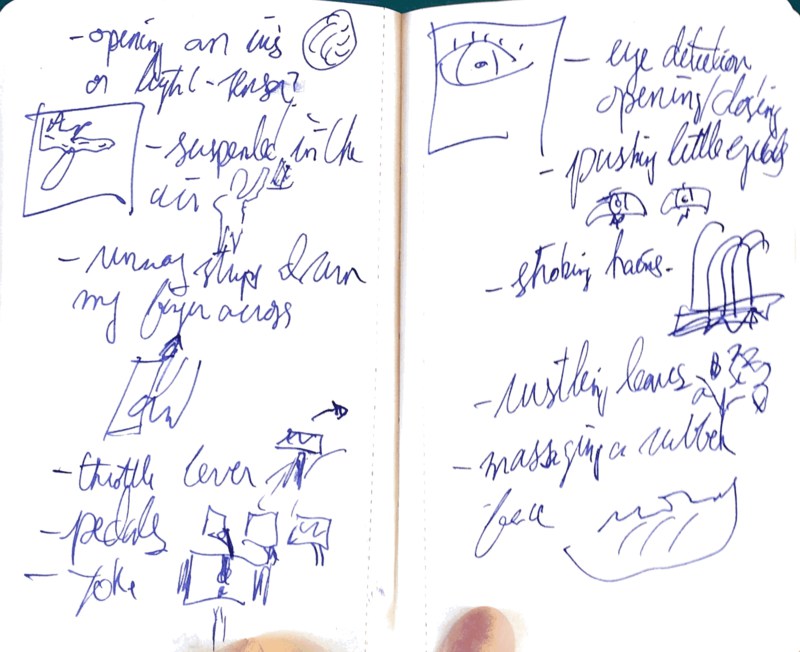 - opening an iris
or light-sensor?
- suspended in the
air
- running strips down
my finger across
- throttle lever
- pedals
- yoke
- eye detection
opening/closing
- pushing little eyeballs
- stroking hairs.
- rustling leaves
- massaging a rubber
face